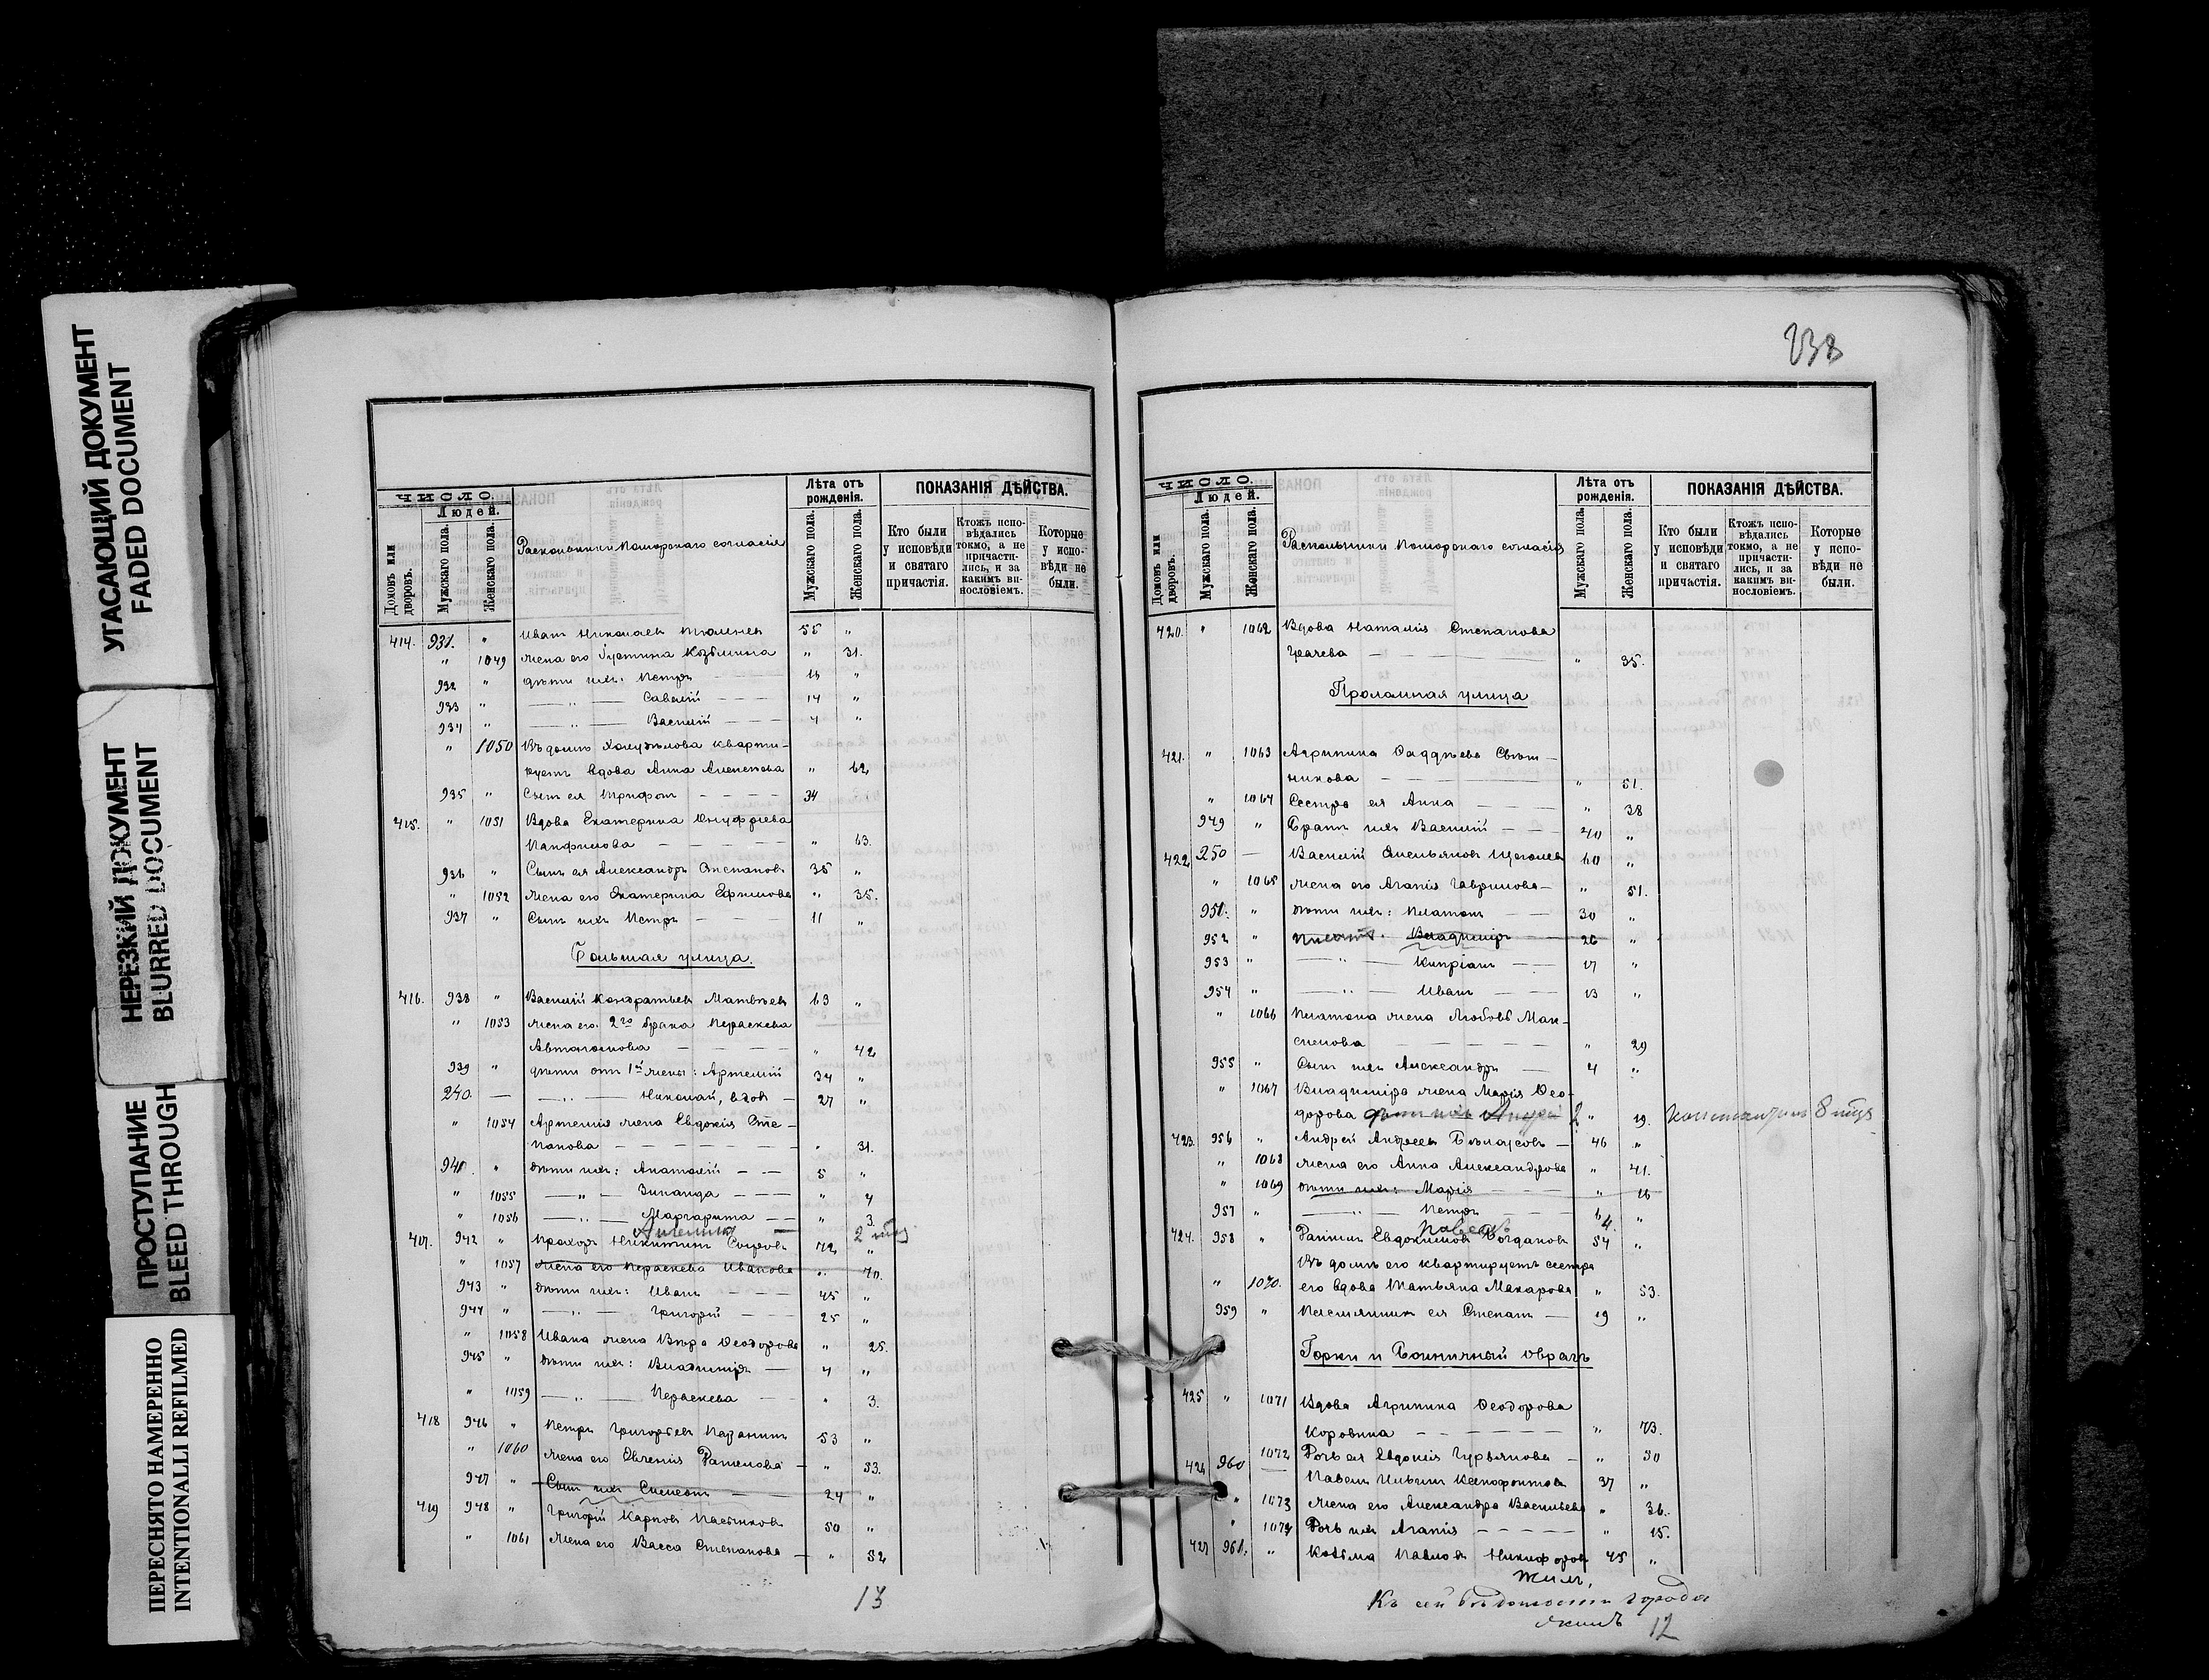 УГАСАЮЩИЙ ДОКУМЕНТ
FADED DOCUMENT
НЕРЕЗКИЙ ДОКУМЕНТ
BLURRED DOCUMENT
ПРОСТУПАНИЕ
BLEED THROUGH
ПЕРЕСНЯТО НАМЕРЕННО
INTENTIONALLI REFILMED
ЧИСЛО.
Людей.
Домовъ или дворовъ.
Мужскаго пола.
Женскаго пола.
Раскольники Поморскаго согласія
Лѣта отъ рожденія.
Мужскаго пола.
Женскаго пола.
ПОКАЗАНІЯ ДѢЙСТВА.
Кто были у исповѣди и святаго причастія.
Ктожъ исповѣдались токмо, а не причастились, и за какимъ винословіемъ.
Которые у исповѣди не были.
414. 931. " Иванъ Николаевъ 55 "
" 1049 Жена его Устина Козьмина " 31.
932 " Дѣти ихъ: Петръ "
933 " — " — Савелій — — 14 "
934 " — " — Василій — — 4 "
" 1050 Въ домѣ кварти-
руетъ вдова Анна Алексѣева " 62
935 " Сынъ ея Трифонъ — — — 34
415. " 1051 Вдова Екатерина Онуфріева
Панфилова — — — — " 63.
936 " Сынъ ея Александръ Степановъ 35 "
" 1052 Жена его Екатерина Ефимова " 35.
937 " Сынъ ихъ Петръ — — — 11 "
Большая улица.
416. 938 " Василій Кондратьевъ Матвѣевъ 63 "
" 1053 Жена его 2го брака Параскева
Автономова — — — — " 42
939 " Дѣти отъ 1й жены: Артемій 34 "
240. — — " — Николай, вдов — 27 "
" 1054 Артемія жена Евдокія Сте-
панова — — — — — " 31.
941. " Дѣти ихъ: Анатолій — — 5 "
" 1055 — " — Зинаида — — — " 4
" 1056 — " — Маргарита — — " 3.
417. 942 " Прохоръ Никитинъ 72 "
" 1057 Жена его Параскева Иванова " 70.
943 " Дѣти ихъ: Иванъ — — — 45 "
944 " — " — Григорій — 25 "
" 1058 Ивана жена Вѣра Ѳеодорова " 25.
945 " Дѣти ихъ: Владиміръ — 4 "
" 1059 — " — Параскева — " 3.
418 946 " Петръ Григорьевъ 53 "
" 1060 Жена его Евгенія — " 53.
947 " Сынъ ихъ Симеонъ — — 24 "
419 948 " Григорій Карповъ Пастуховъ 50 "
" 1061 Жена его Васса Степанова — " 52
13
238
ЧИСЛО.
Людей.
Домовъ или дворовъ.
Мужскаго пола.
Женскаго пола.
Раскольники Поморскаго согласія
Лѣта отъ рожденія.
Мужскаго пола.
Женскаго пола.
ПОКАЗАНІЯ ДѢЙСТВА.
Кто были у исповѣди и святаго причастія.
Ктожъ исповѣдались токмо, а не причастились, и за какимъ винословіемъ.
Которые у исповѣди не были.
420. " 1062 Вдова Наталія Степанова
Грачева — — — " 35.
Проломная улица
421. " 1063 Агрипина Ѳаддѣева Свѣш-
никова — — — — " 51.
" 1064 Сестра ея Анна — — — " 38
949 " Братъ ихъ Василій — — 40 "
422 250 — Василій Емельяновъ Щеголевъ 60 "
" 1065 Жена его Агапія Гаврилова — " 51.
951. " Дѣти ихъ: Платонъ — — 30 "
952 " Владиміръ — 26 "
953 " — " — Кипріанъ — — 17 "
954 " — " — Иванъ — — 13 "
" 1066 Платона жена Любовь Мак-
симова — — — — " 29
955 " Сынъ ихъ Александръ — 4 "
" 1067 Владиміра жена Марія Ѳео-
дорова " 19. Константинъ 8
423. 956 " Андрей Андреевъ Бѣлоусовъ — 46 "
" 1068 Жена его Анна Александрова " 41.
" 1069 Дѣти ихъ: Марія — — — " 16
957 " — " — Петръ "
Павелъ
424. 958 " Евдокимовъ Богдановъ 54 "
Въ домѣ его квартируетъ сестра
" 1070. его вдова Татьяна Макарова " 53.
959 " Племянникъ ея Степанъ — 19 "
Горки и Больничный оврагъ
425 " 1071 Вдова Агрипина Ѳеодорова
Коровина — — — — — " 73.
1072 Дочь ея Евдокія Гурьянова — " 50
426 960 Павелъ Ильинъ Ксенофонтовъ 37 "
" 1073 Жена его Александра Васильева " 36.
" 1074 Дочь ихъ Агапія — — — — " 15.
427 961. " Козьма Павловъ Никифоровъ 45 "
Къ сей вѣдомости города
12